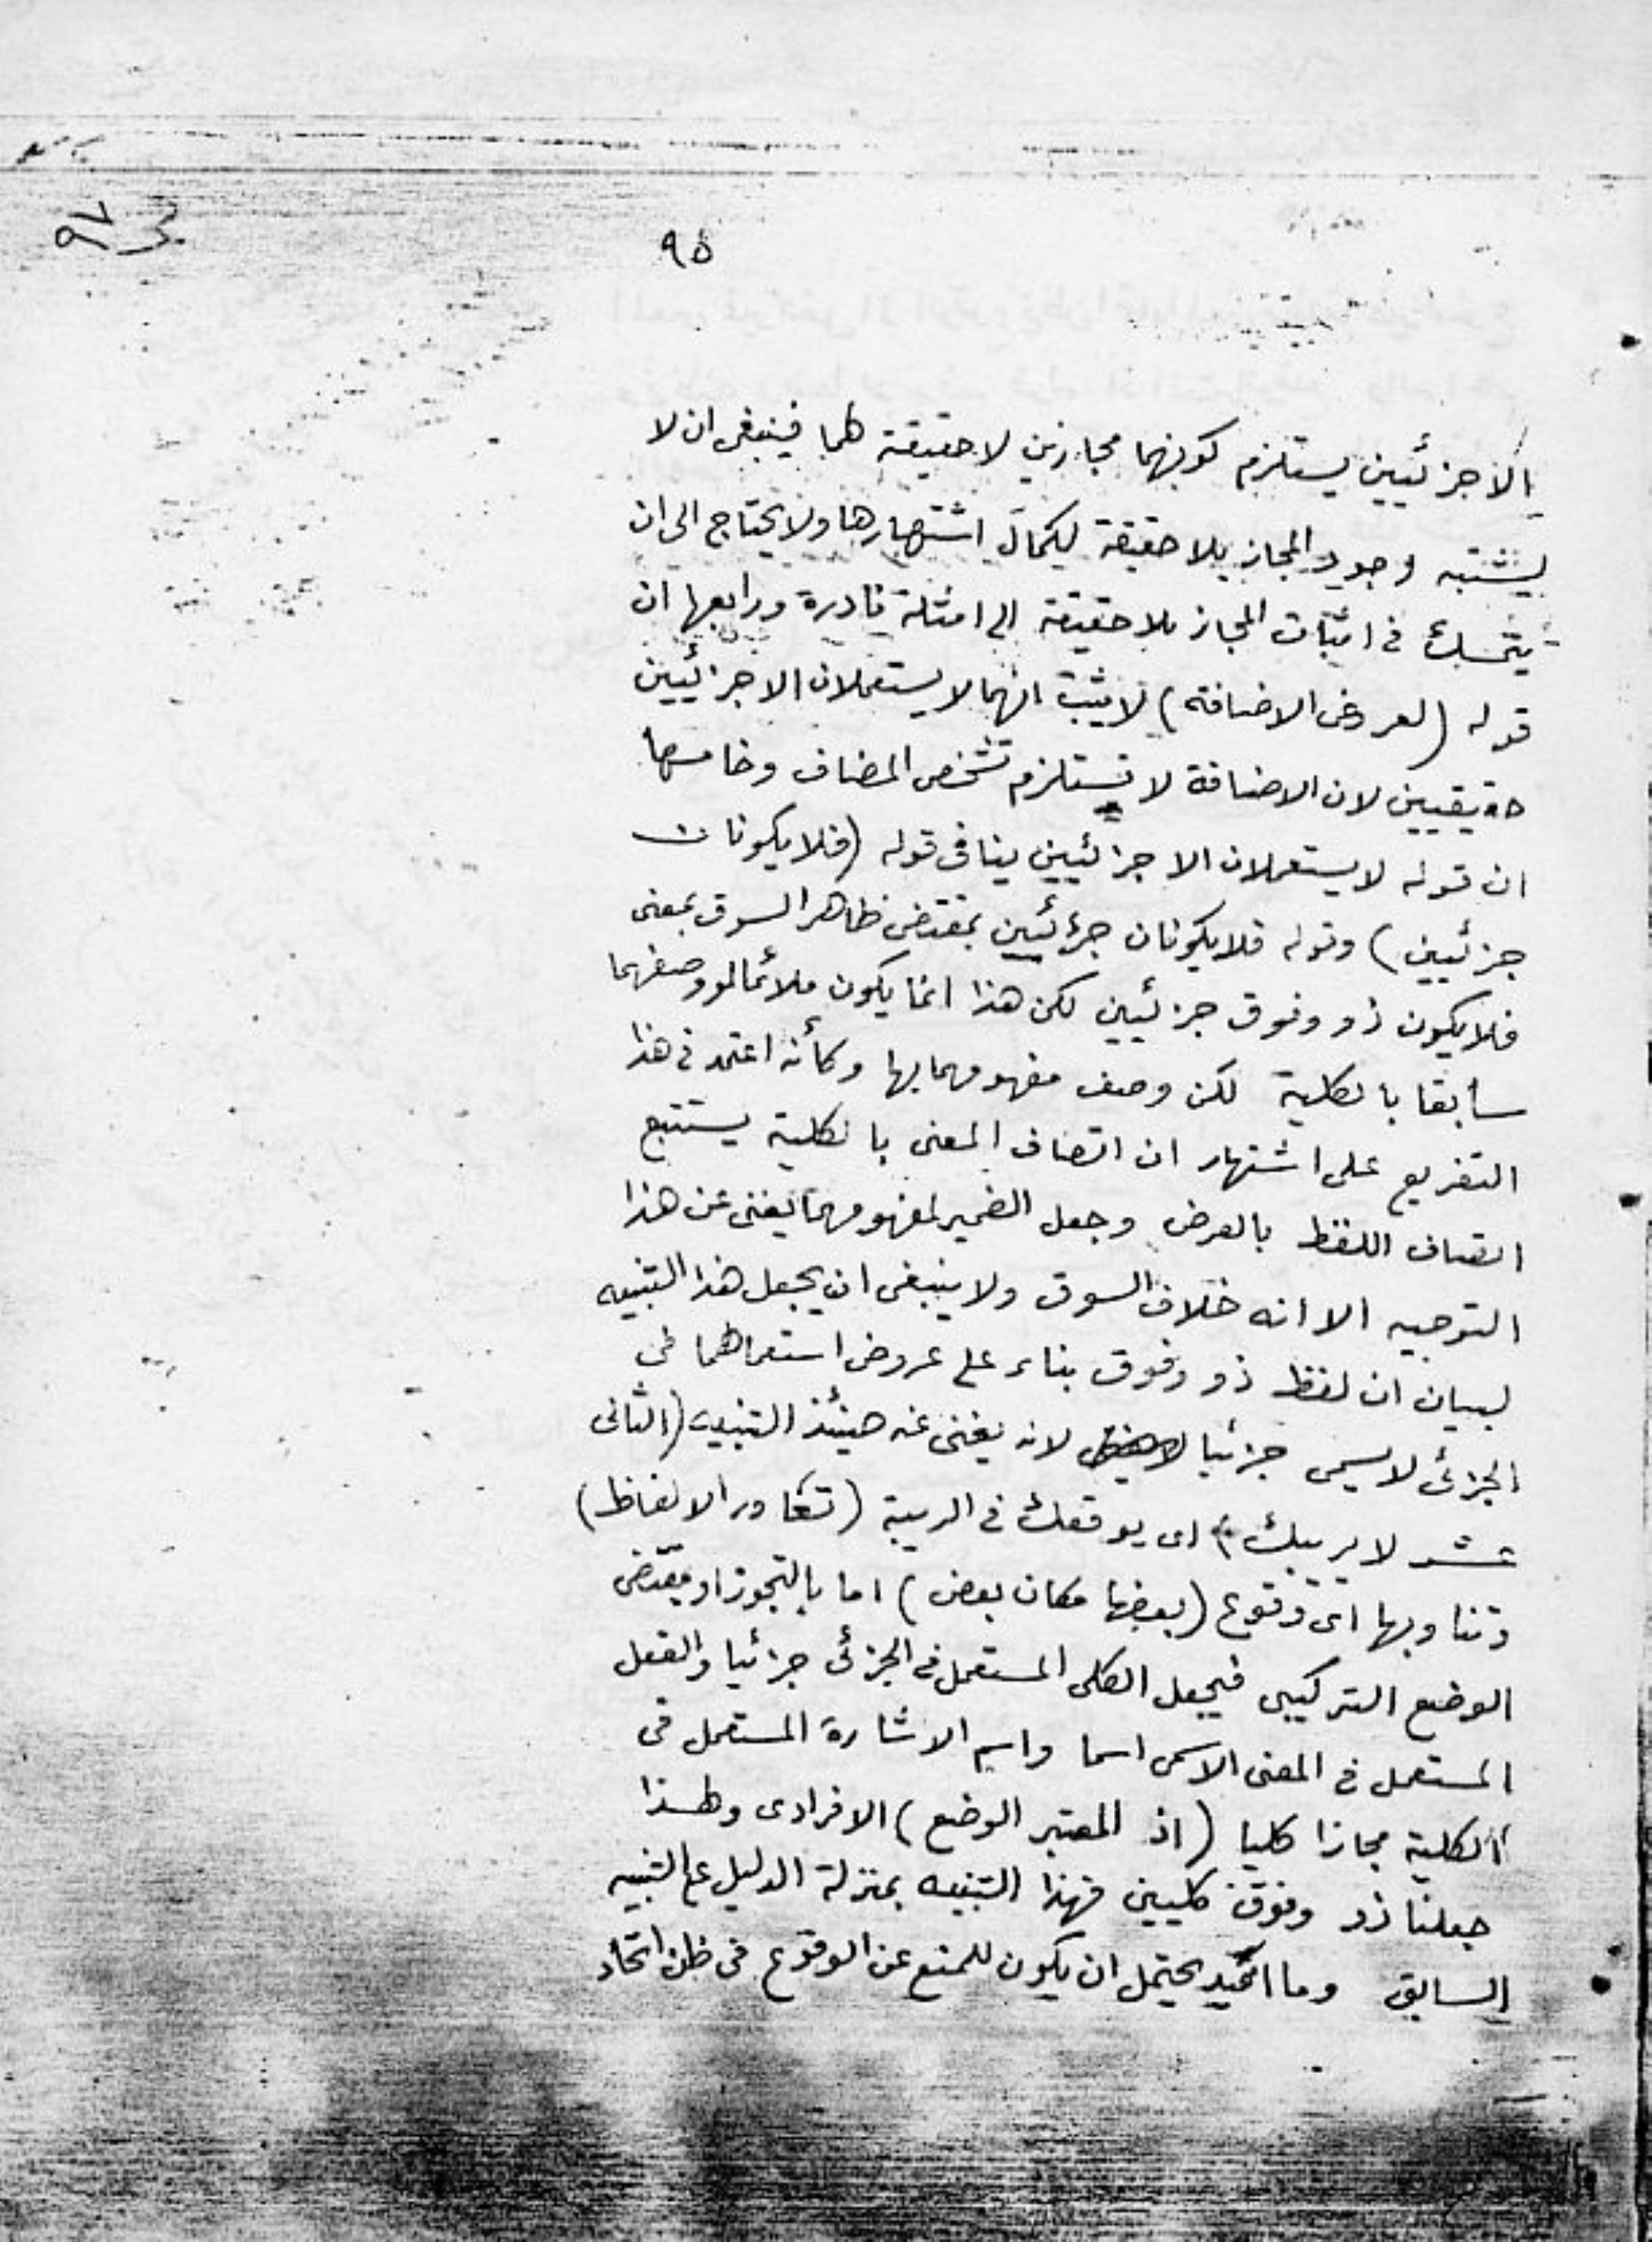 ٩٥
الا جزئيين يستلزم كونهما مجازين لا حقيقة لهما فينبغى ان لا
يشتبه وجود المجاز بلا حقيقة لكمال اشتهارها ولا يحتاج الى ان
يتمسك فى اثبات المجاز بلا حقيقة الى امثلة نادرة ورابعها ان
قوله (لعروض الاضافة) لا يثبت انهما لا يستعملان الا جزئيين
حقيقيين لان الاضافة لا تستلزم تشخص المضاف وخامسها
ان قوله لا يستعملان الا جزئيين ينافى قوله (فلا يكونان
جزئيين) وقوله فلا يكونان جزئيين بمقتضى ظاهر السوق بمعنى
فلا يكون ذو وفوق جزئيين لكن هذا انما يكون ملائما لو وصفهما
سابقا بالكلية لكن وصف مفهومهما بها وكأنه اعتمد فى هذا
التفريع على اشتهار ان اتصاف المعنى بالكلية يستتبع
اتصاف اللفظ بالعرض وجعل الضمير لمفهومهما يغنى عن هذا
التوجيه الا انه خلاف السوق ولا ينبغى ان يجعل هذا التنبيه
لبيان ان لفظ ذو وفوق بناء على عروض استعمالهما فى
الجزئى لا يسمى جزئيا لانه يغنى عنه حينئذ التنبيه (الثانى
عشر لا يريبك) اى يوقعك فى الريبة (تعاور الالفاظ)
وتناوبها اى وقوع (بعضها مكان بعض) اما بالتجوز او بمقتضى
الوضع التركيبى فيجعل الكلى المستعمل فى الجزئى جزئيا والفعل
المستعمل فى المعنى الاسمى اسما واسم الاشارة المستعمل فى
الكلية مجازا كليا (اذ المعتبر الوضع) الافرادى ولهذا
جعلنا ذو وفوق كليين فهذا التنبيه بمنزلة الدليل على التنبيه
السابق وما يحتمل ان يكون للمنع عن الوقوع فى ظن اتحاد